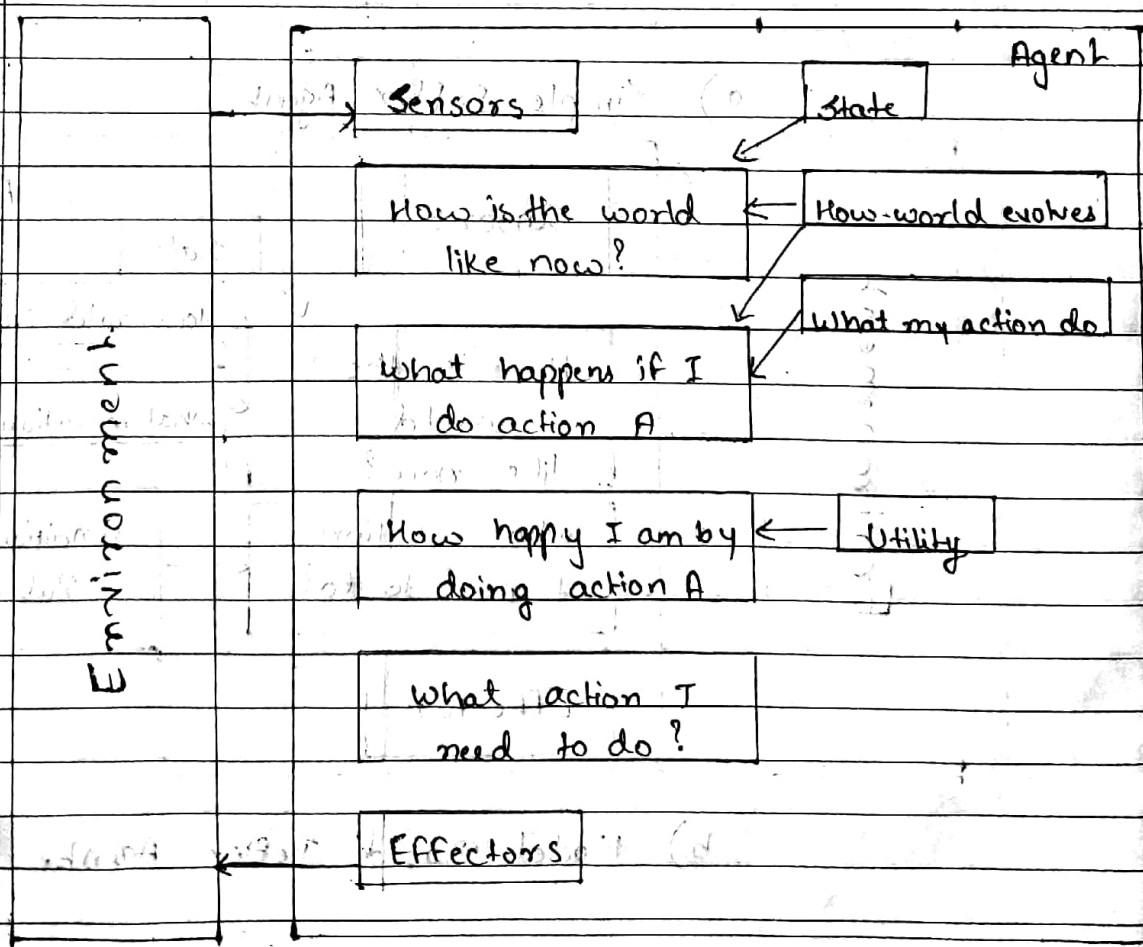 Agent
Sensors
State
How is the world
like now?
How world evolves
What my action do
What happens if I
do action A
How happy I am by
doing action A
Utility
What action I
need to do?
Effectors
Environment